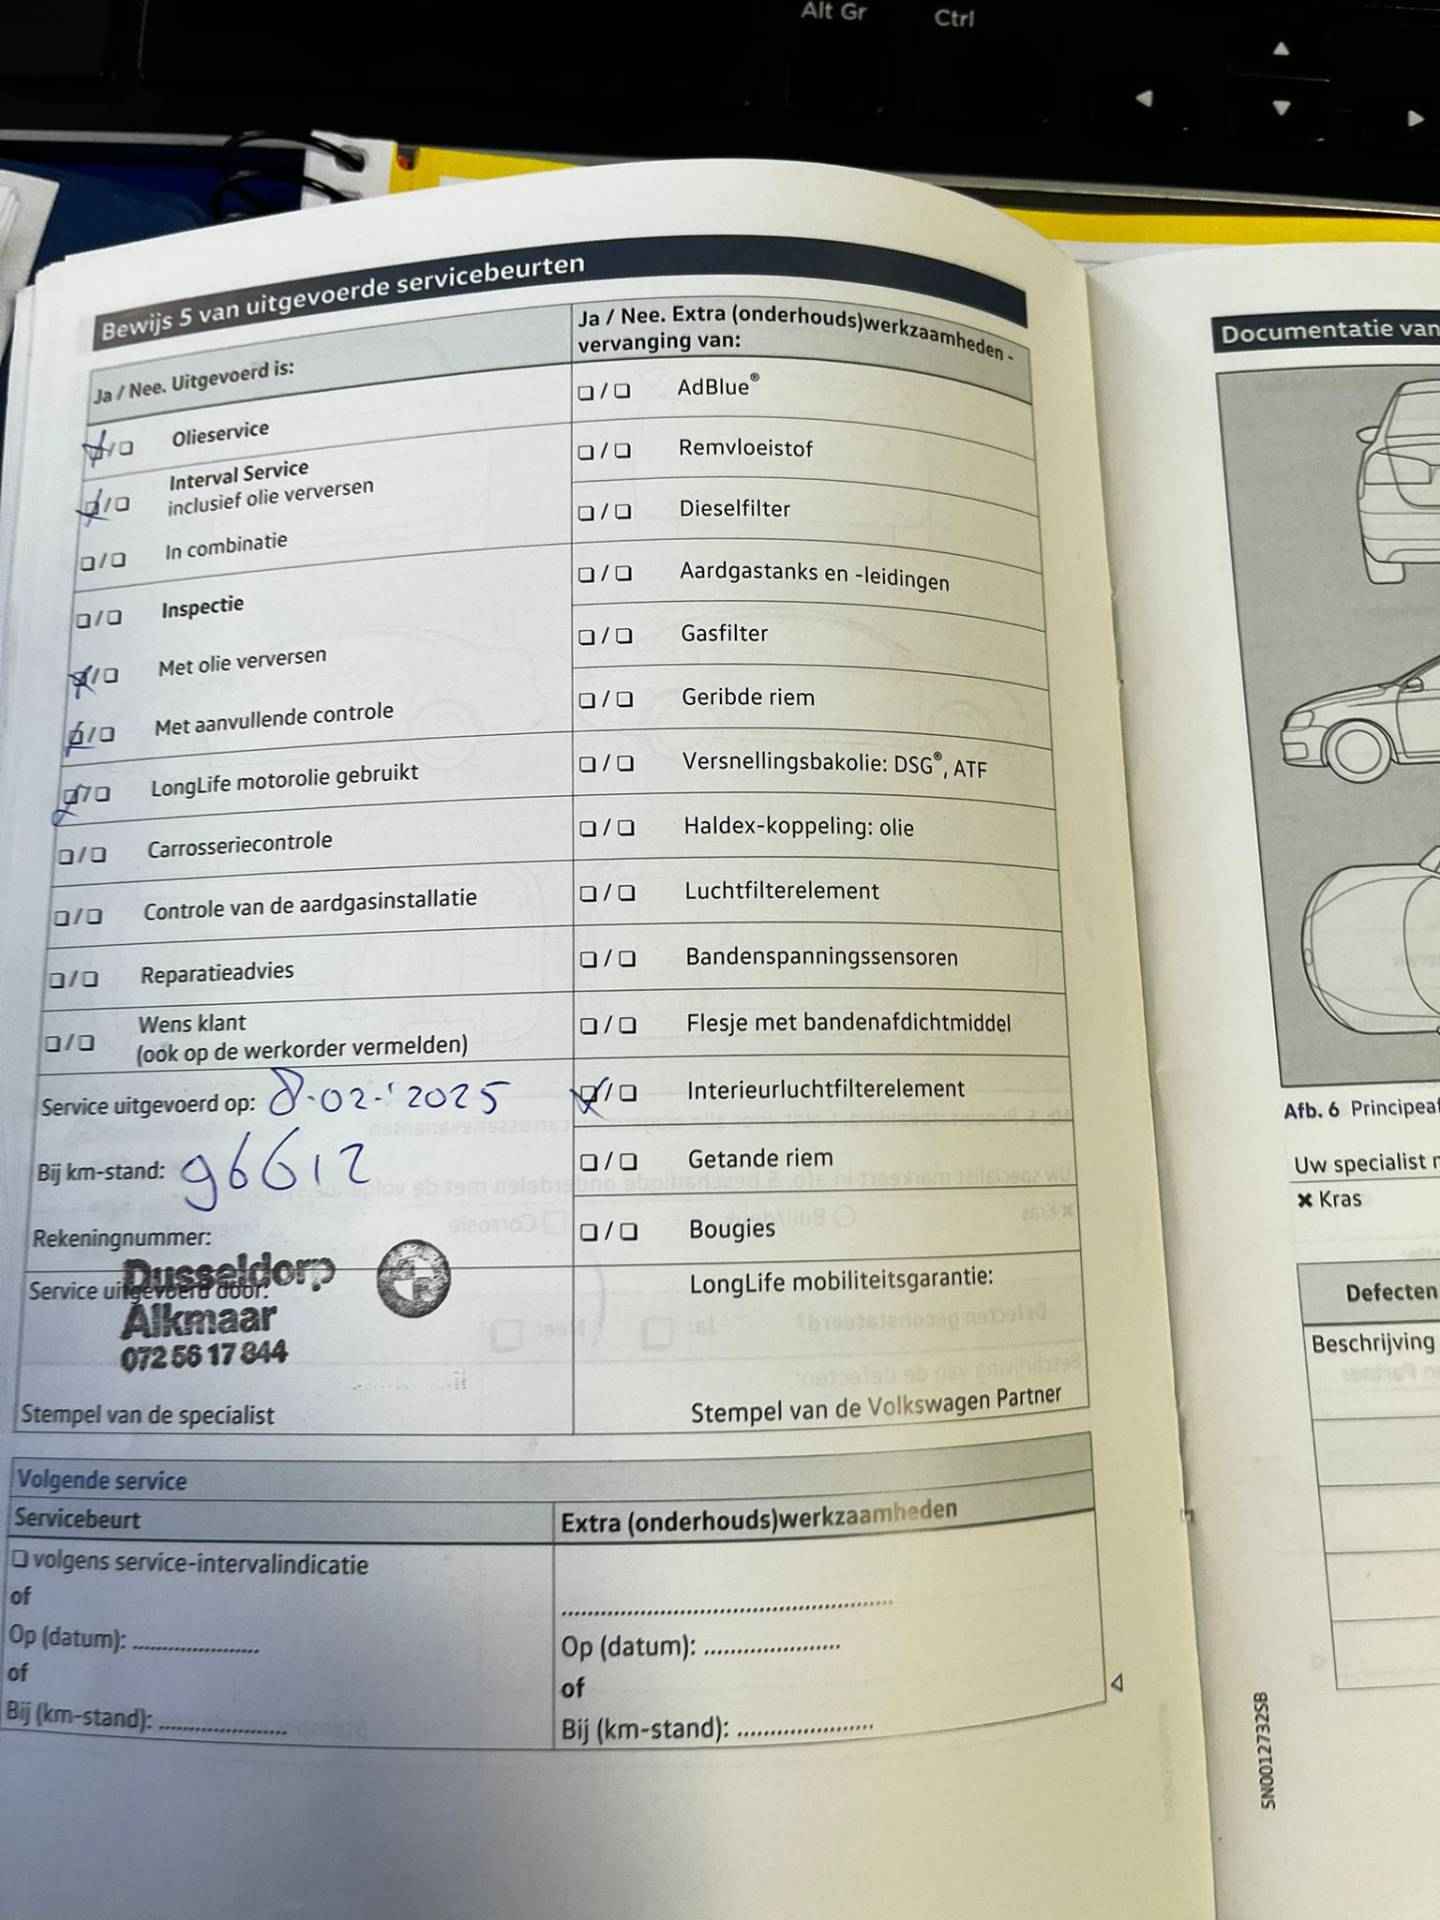 Alt Gr Ctrl
Bewijs 5 van uitgevoerde servicebeurten
Ja / Nee. Uitgevoerd is:
❑/❑ Olieservice
❑/❑ Interval Service
inclusief olie verversen
❑/❑ In combinatie
❑/❑ Inspectie
❑/❑ Met olie verversen
❑/❑ Met aanvullende controle
❑/❑ LongLife motorolie gebruikt
❑/❑ Carrosseriecontrole
❑/❑ Controle van de aardgasinstallatie
❑/❑ Reparatieadvies
❑/❑ Wens klant
(ook op de werkorder vermelden)
Service uitgevoerd op: 8-02-'2025
Bij km-stand: 96612
Rekeningnummer:
Service uitgevoerd door:
Dusseldorp
Alkmaar
072 56 17 844
Stempel van de specialist
Ja / Nee. Extra (onderhouds)werkzaamheden -
vervanging van:
❑/❑ AdBlue®
❑/❑ Remvloeistof
❑/❑ Dieselfilter
❑/❑ Aardgastanks en -leidingen
❑/❑ Gasfilter
❑/❑ Geribde riem
❑/❑ Versnellingsbakolie: DSG®, ATF
❑/❑ Haldex-koppeling: olie
❑/❑ Luchtfilterelement
❑/❑ Bandenspanningssensoren
❑/❑ Flesje met bandenafdichtmiddel
❑/❑ Interieurluchtfilterelement
❑/❑ Getande riem
❑/❑ Bougies
LongLife mobiliteitsgarantie:
Stempel van de Volkswagen Partner
Volgende service
Servicebeurt
❑ volgens service-intervalindicatie
of
Op (datum): ....................
of
Bij (km-stand): ....................
Extra (onderhouds)werkzaamheden
..................................................
Op (datum): ....................
of
Bij (km-stand): ....................
Documentatie van
Afb. 6
Uw specialist
✖ Kras
Defecten
Beschrijving
5N0012732SB